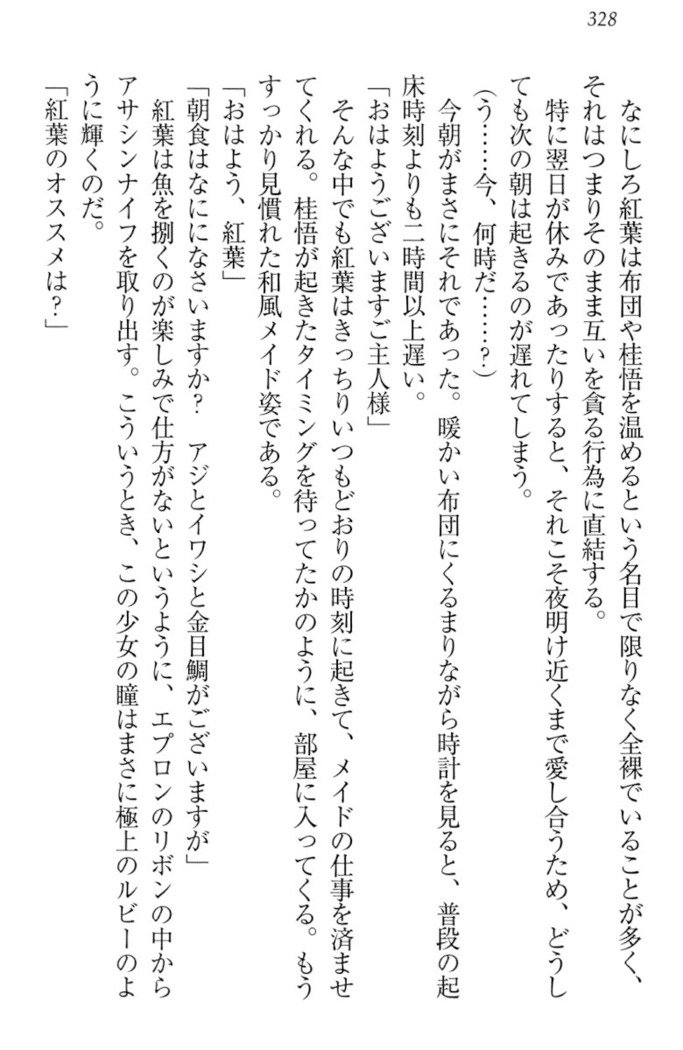 328
なにしろ紅葉は布団や桂悟を温めるという名目で限りなく全裸でいることが多く、
それはつまりそのまま互いを貪る行為に直結する。
特に翌日が休みであったりすると、それこそ夜明け近くまで愛し合うため、どうし
ても次の朝は起きるのが遅れてしまう。
(う……今、何時だ……?)
今朝がまさにそれであった。暖かい布団にくるまりながら時計を見ると、普段の起
床時刻よりも二時間以上遅い。
「おはようございますご主人様」
そんな中でも紅葉はきっちりいつもどおりの時刻に起きて、メイドの仕事を済ませ
てくれる。桂悟が起きたタイミングを待ってたかのように、部屋に入ってくる。もう
すっかり見慣れた和風メイド姿である。
「おはよう、紅葉」
「朝食はなにになさいますか?　アジとイワシと金目鯛がございますが」
紅葉は魚を捌くのが楽しみで仕方がないというように、エプロンのリボンの中から
アサシンナイフを取り出す。こういうとき、この少女の瞳はまさに極上のルビーのよ
うに輝くのだ。
「紅葉のオススメは?」